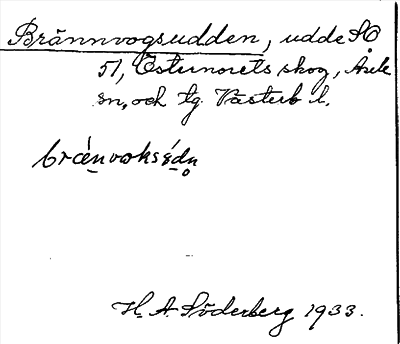 Brännvogsudden, udde SO
51, Östernorets skog, Åsele
sn, och tg. Västerb l.
bræ̀nvoksédn̥
H. A. Söderberg 1933.